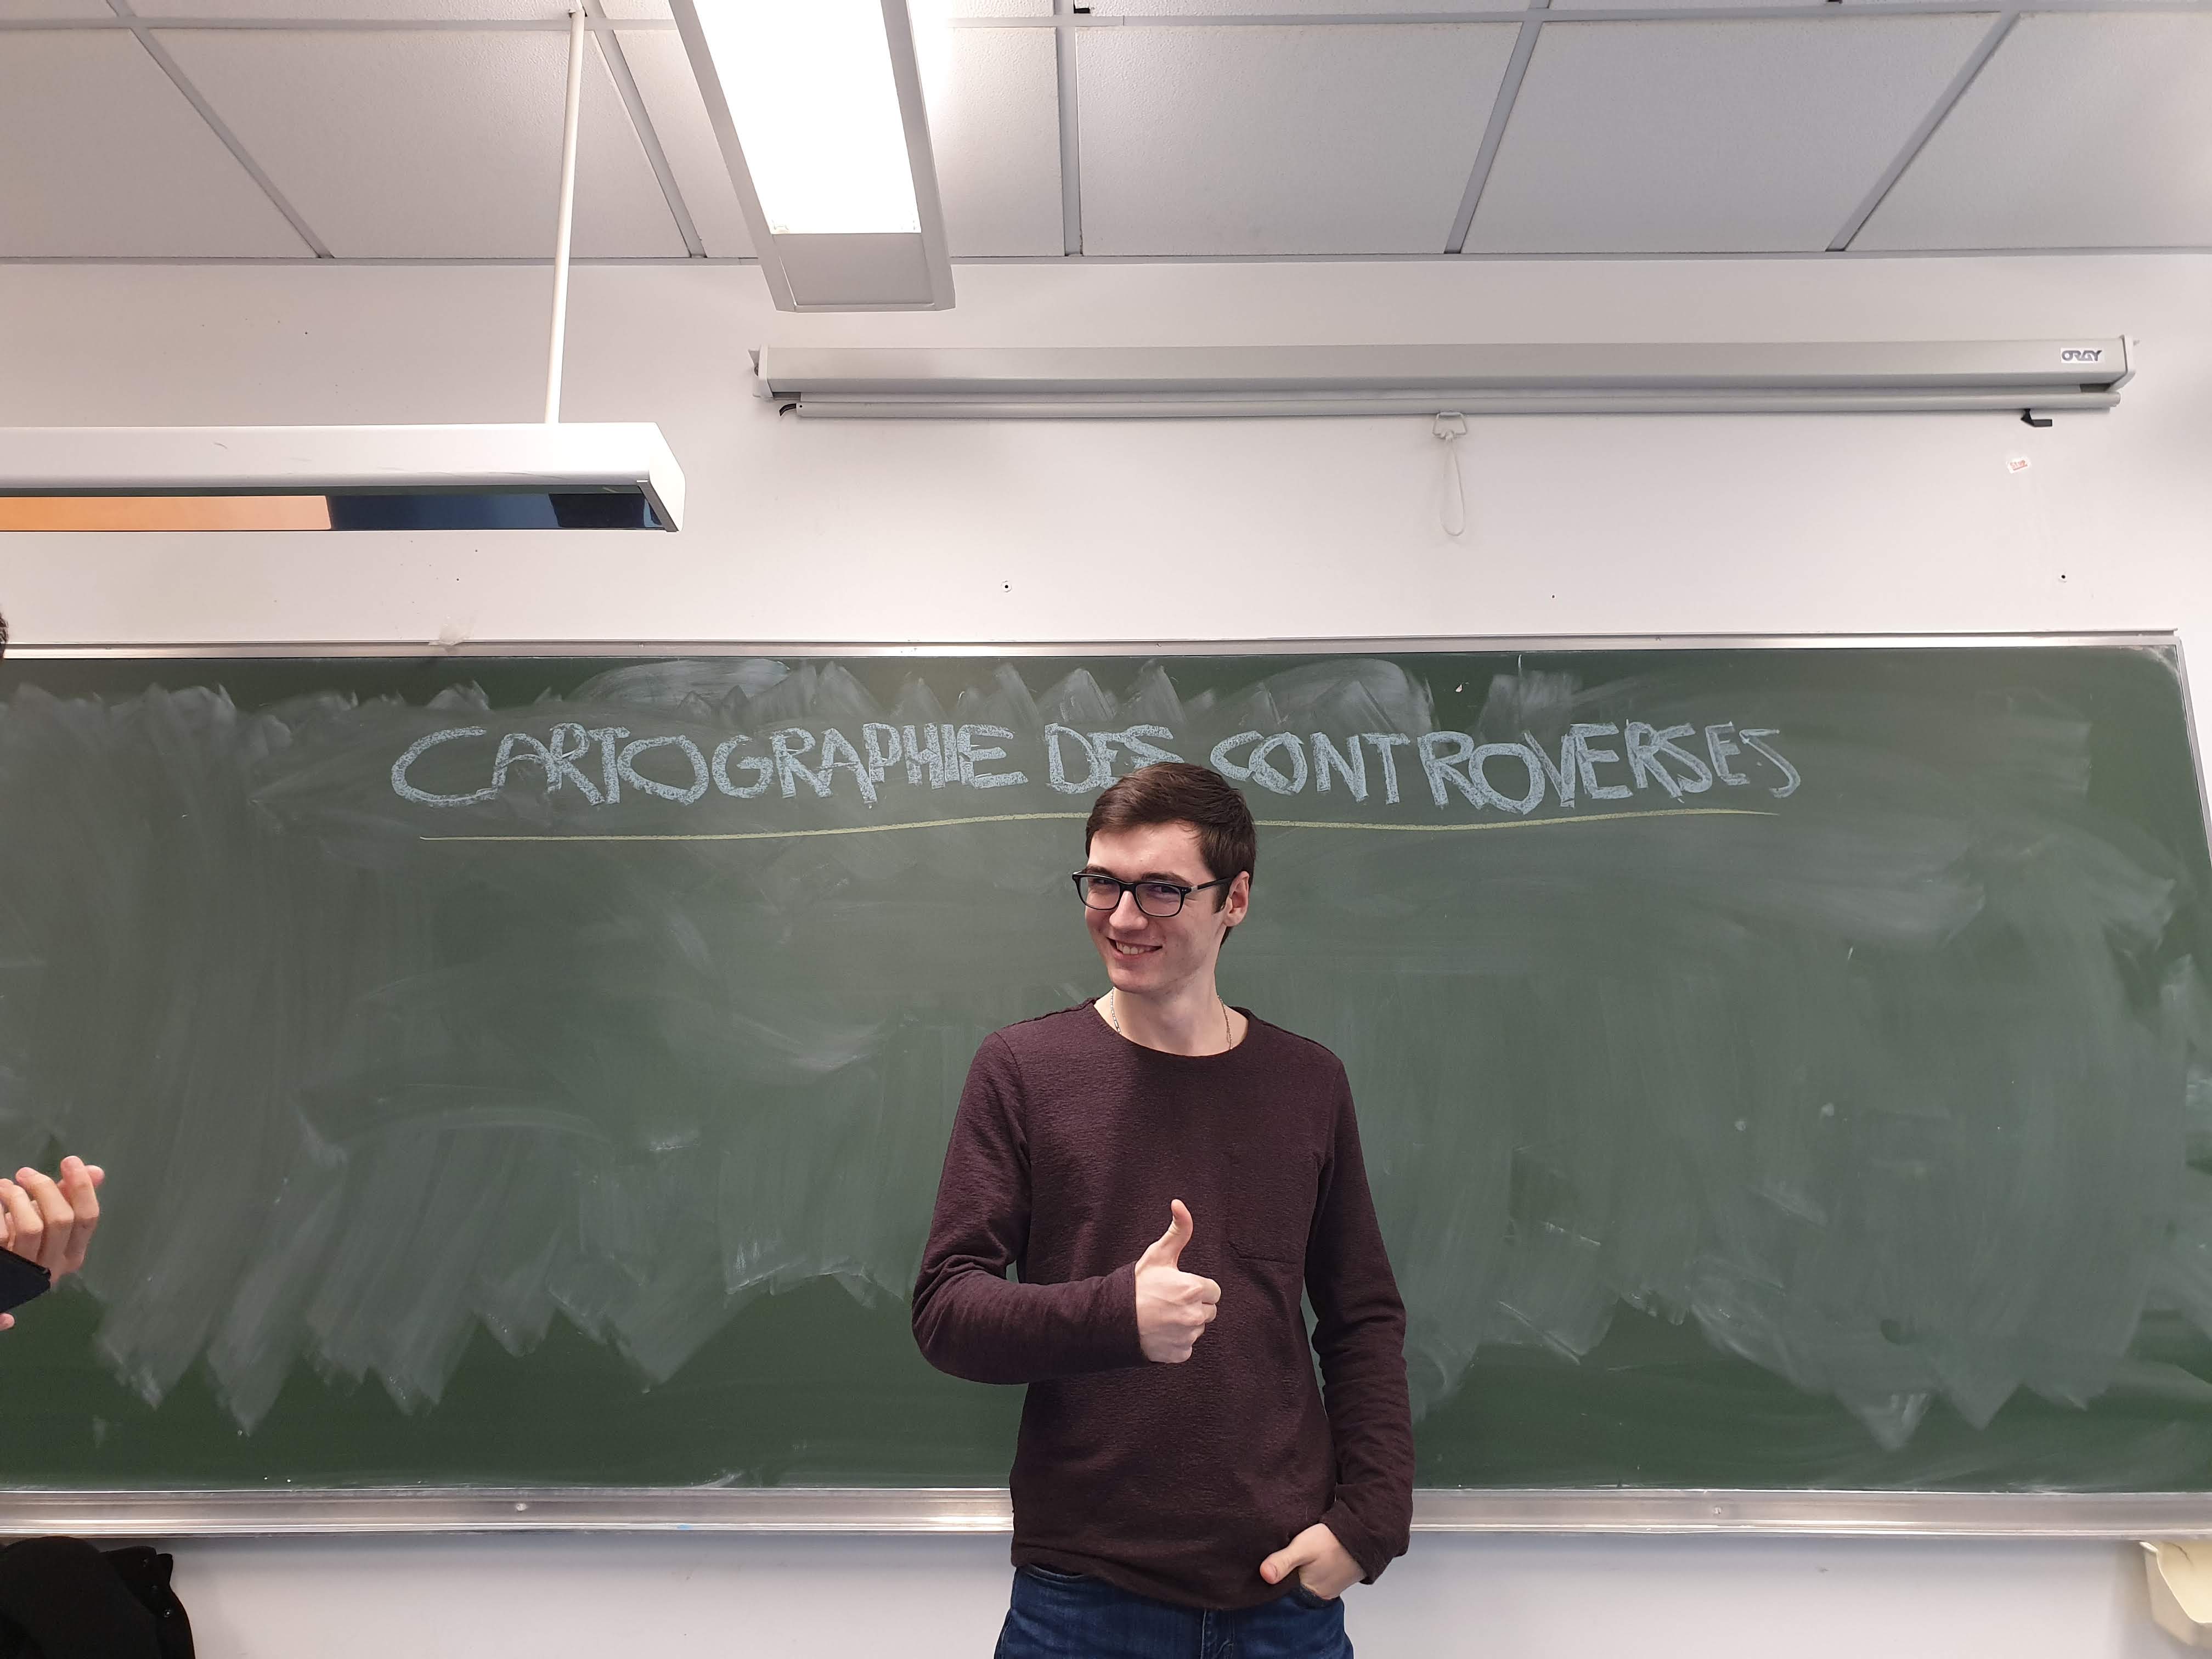 ORAY
CARTOGRAPHIE DES CONTROVERSES